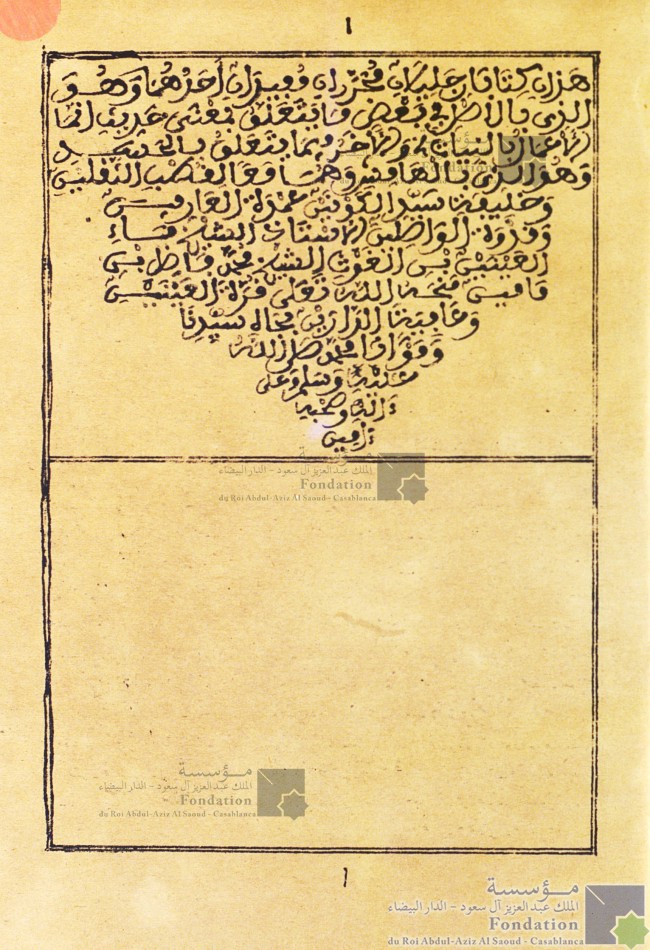 ١
هذان كتابان جليلان محرران مفيدان أحدهما وهو
الذي بالأصل في بعض ما يتعلق بمعنى حديث إنما
الأعمال بالنيات والآخر بما يتعلق بالحسد
وهو الذي بالهامش وهما معا لقطب الثقلين
وخليفة سيد الكونين عمدة العارفين
وقدوة الواصلين الأستاذ الشيخ ماء
العينين بن الغوث الشيخ محمد فاضل بن
مامين منحه الله تعلى قرة العينين
وعافية الدارين بجاه سيدنا
ومولانا محمد صلى الله
عليه وسلم وعلى
ءاله وصحبه
ءامين
مؤسسة
الملك عبد العزيز آل سعود - الدار البيضاء
Fondation
du Roi Abdul-Aziz Al Saoud - Casablanca
مؤسسة
الملك عبد العزيز آل سعود - الدار البيضاء
Fondation
du Roi Abdul-Aziz Al Saoud - Casablanca
١
مؤسسة
الملك عبد العزيز آل سعود - الدار البيضاء
Fondation
du Roi Abdul-Aziz Al Saoud - Casablanca